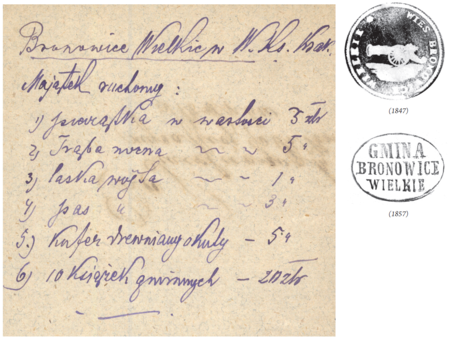 Bronowice Wielkie w W. Ks. Krak.
Majątek ruchomy:
1) pieczątka w wartości 3 złr
2) Trąba nocna " " 5 "
3) laska wójta " " 1 "
4) pas " " " 3 "
5.) Kufer drewniany okuty — 5 "
6) 10 Książek gminnych — 20 złr
WIELKIE WIEŚ BRONO
(1847)
GMINA
BRONOWICE
WIELKIE
(1857)